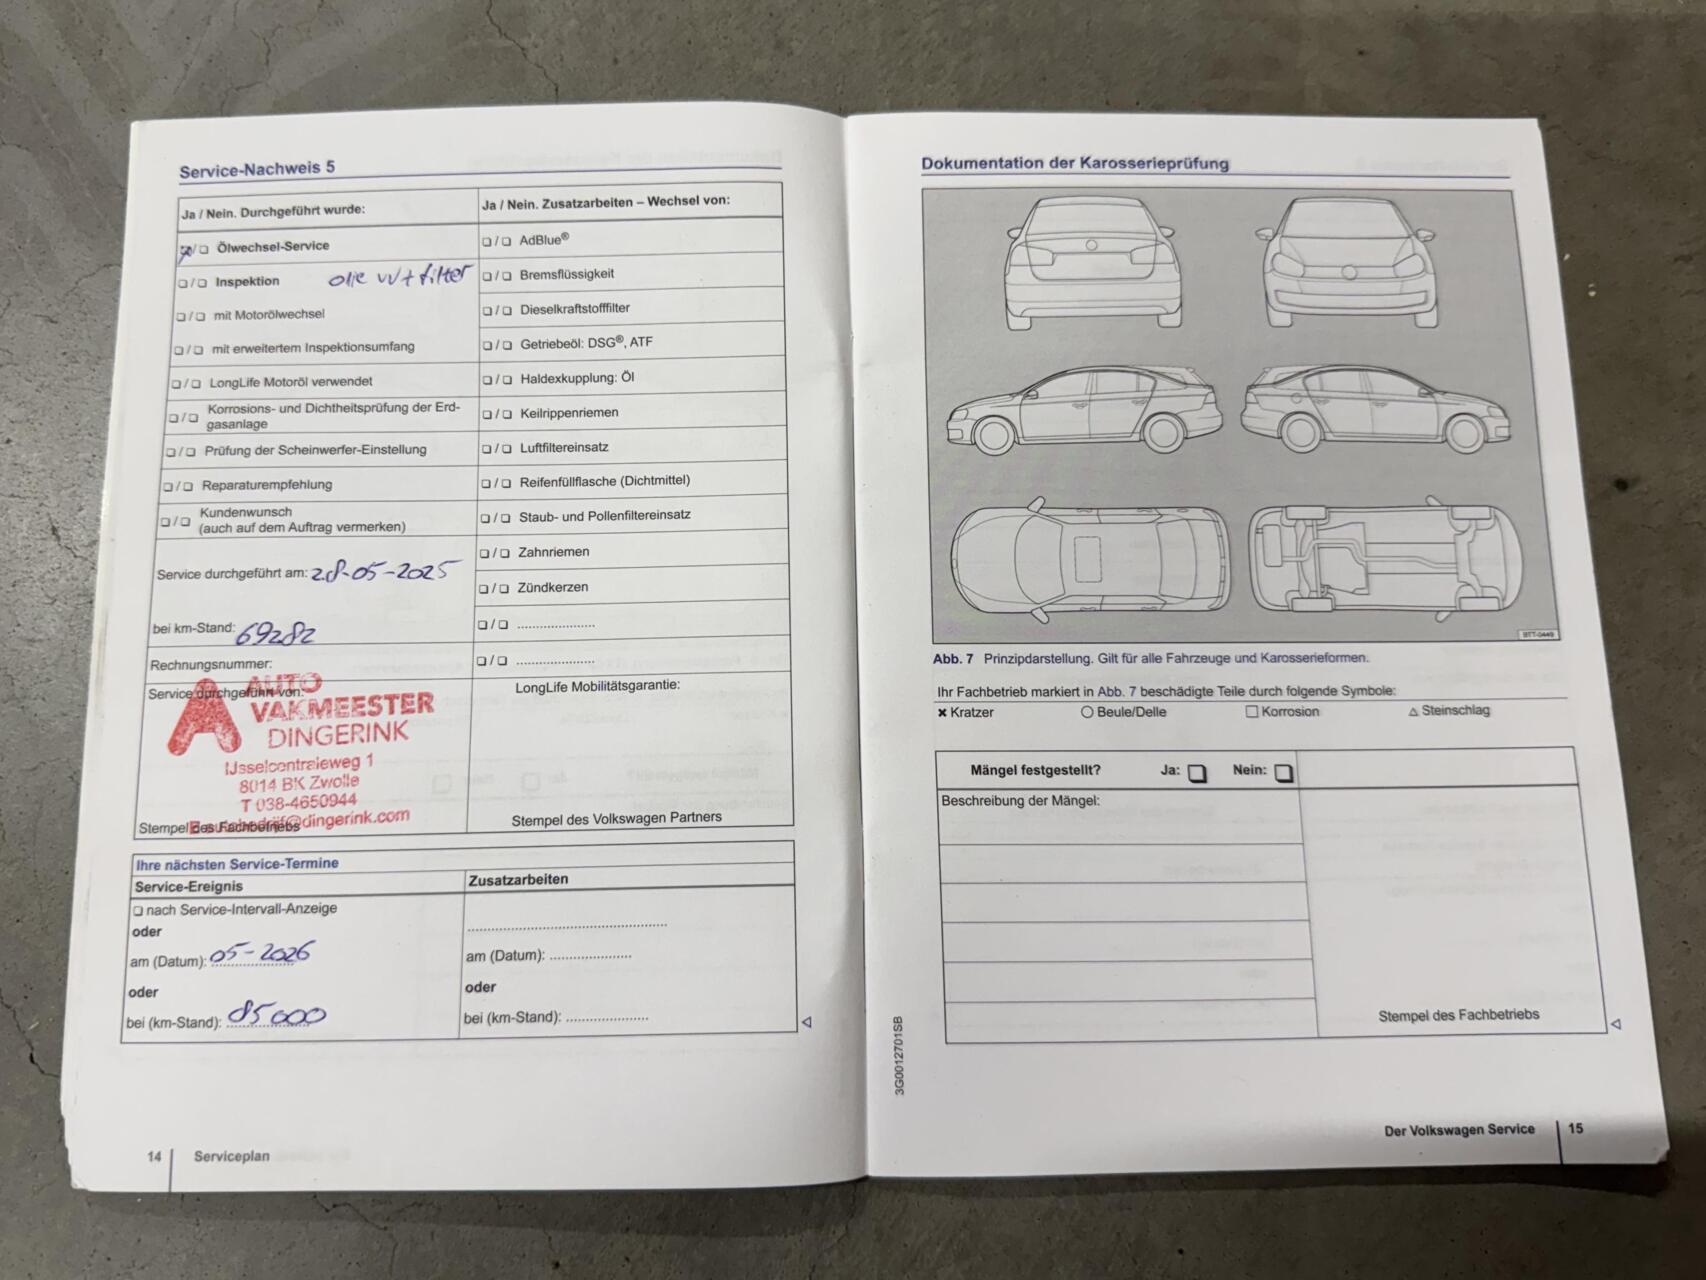 Service-Nachweis 5
Ja / Nein. Durchgeführt wurde:
☒/❏ Ölwechsel-Service
❏/❏ Inspektion olie W+ filter
❏/❏ mit Motorölwechsel
❏/❏ mit erweitertem Inspektionsumfang
❏/❏ LongLife Motoröl verwendet
❏/❏ Korrosions- und Dichtheitsprüfung der Erd-
gasanlage
❏/❏ Prüfung der Scheinwerfer-Einstellung
❏/❏ Reparaturempfehlung
❏/❏ Kundenwunsch
(auch auf dem Auftrag vermerken)
Service durchgeführt am: 28-05-2025
bei km-Stand: 69282
Rechnungsnummer:
Service durchgeführt von:
AUTO
VAKMEESTER
DINGERINK
IJsselcentraleweg 1
8014 BK Zwolle
T 038-4650944
@dingerink.com
Stempel des Fachbetriebs
Ja / Nein. Zusatzarbeiten – Wechsel von:
❏/❏ AdBlue®
❏/❏ Bremsflüssigkeit
❏/❏ Dieselkraftstofffilter
❏/❏ Getriebeöl: DSG®, ATF
❏/❏ Haldexkupplung: Öl
❏/❏ Keilrippenriemen
❏/❏ Luftfiltereinsatz
❏/❏ Reifenfüllflasche (Dichtmittel)
❏/❏ Staub- und Pollenfiltereinsatz
❏/❏ Zahnriemen
❏/❏ Zündkerzen
❏/❏ ......................
❏/❏ ......................
LongLife Mobilitätsgarantie:
Stempel des Volkswagen Partners
Ihre nächsten Service-Termine
Service-Ereignis
❏ nach Service-Intervall-Anzeige
oder
am (Datum): 05-2026
oder
bei (km-Stand): 85000
Zusatzarbeiten
......................................................
am (Datum): ......................
oder
bei (km-Stand): ......................
14 Serviceplan
Dokumentation der Karosserieprüfung
BTT-0449
Abb. 7 Prinzipdarstellung. Gilt für alle Fahrzeuge und Karosserieformen.
Ihr Fachbetrieb markiert in Abb. 7 beschädigte Teile durch folgende Symbole:
✖ Kratzer ○ Beule/Delle □ Korrosion △ Steinschlag
Mängel festgestellt? Ja: ❏ Nein: ❏
Beschreibung der Mängel:
Stempel des Fachbetriebs
3G0012701SB
Der Volkswagen Service 15